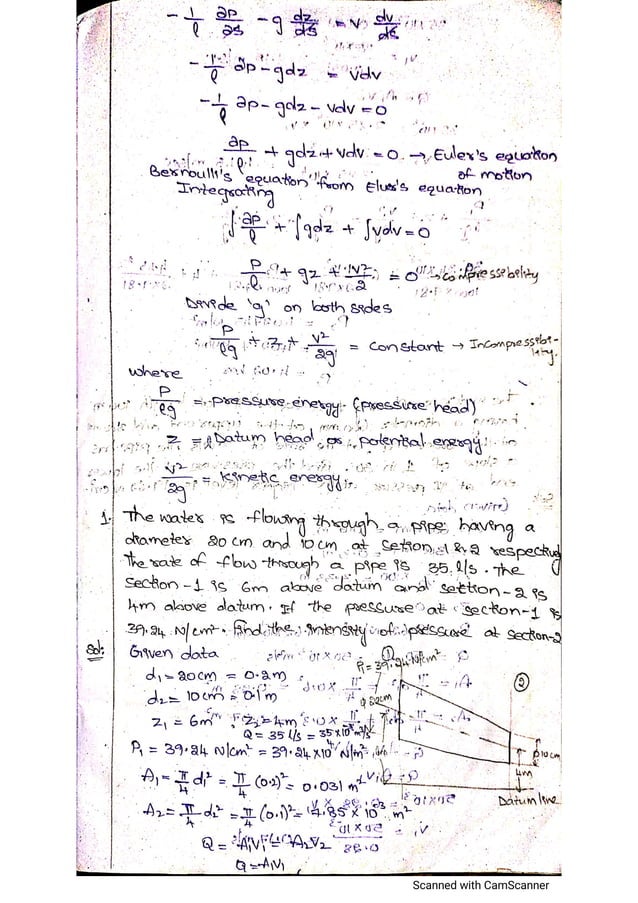 - 1/ρ ∂p/∂s - g dz/ds = v dv/ds
- 1/ρ ∂p - gdz = vdv
- 1/ρ ∂p - gdz - vdv = 0
∂p/ρ + gdz + vdv = 0 → Euler's equation
of motion
Bernoulli's equation from Elur's equation
Integrating
∫ ∂p/ρ + ∫gdz + ∫vdv = 0
P/ρ + gz + v²/2 = 0 → compressebelity
Devide 'g' on both sides
P/ρg + z + v²/2g = constant → Incompressebe-
lity.
where
P/ρg = pressure energy (pressure head)
z = Datum head or potential energy
v²/2g = kinetic energy
1. The water is flowing through a pipe having a
diameter 20 cm and 10 cm at setion 1 & 2 respectively
The rate of flow through a pipe is 35 l/s. The
section-1 is 6m above datum and settion-2 is
4m above datum. If the pressure at section-1 is
39.24 N/cm². Find the intensity of pressure at section-2
Sol: Given data
d₁ = 20cm = 0.2m
d₂ = 10cm = 0.1m
z₁ = 6m z₂ = 4m
Q = 35 l/s = 35×10⁻³ m³/s
P₁ = 39.24 N/cm² = 39.24×10⁴ N/m²
A₁ = π/4 d₁² = π/4 (0.2)² = 0.031 m²
A₂ = π/4 d₂² = π/4 (0.1)² = 7.85 × 10⁻³ m²
Q = A₁V₁ = A₂V₂
Q = A₁V₁
①
P₁ = 39.24 N/cm²
②
20cm
10cm
4m
Datum line
Scanned with CamScanner